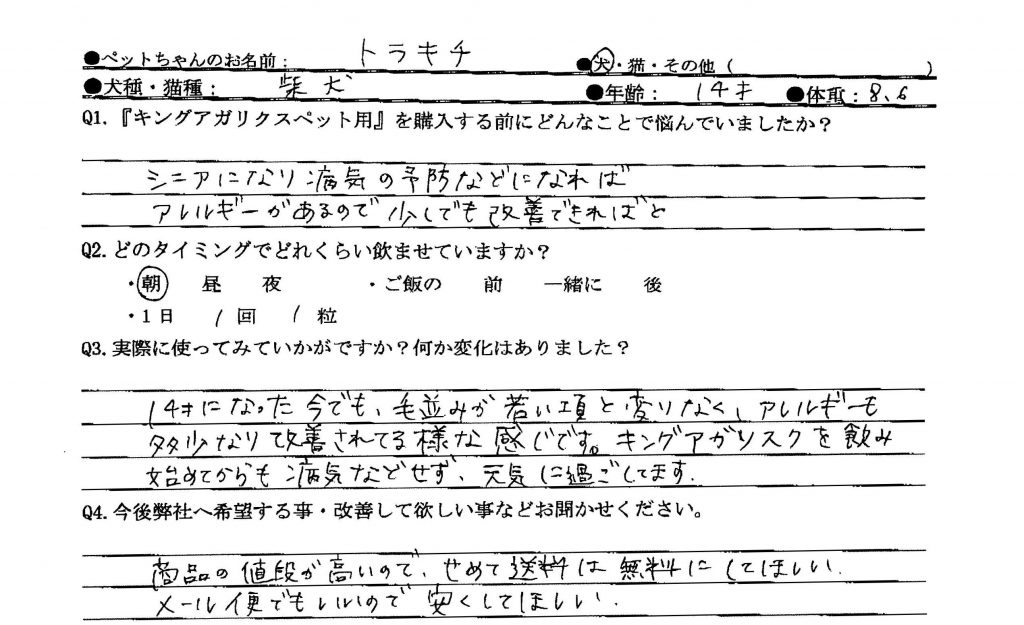 ●ペットちゃんのお名前： トラキチ ●犬・猫・その他（ ）
●犬種・猫種： 柴犬 ●年齢： 14才 ●体重：8.6
Q1.『キングアガリクスペット用』を購入する前にどんなことで悩んでいましたか？
シニアになり病気の予防などになれば
アレルギーがあるので少しでも改善できればと
Q2.どのタイミングでどれくらい飲ませていますか？
・朝 昼 夜 ・ご飯の 前 一緒に 後
・1日 1回 1粒
Q3.実際に使ってみていかがですか？何か変化はありました？
14才になった今でも、毛並みが若い頃と変りなく、アレルギーも
多少なり改善されてる様な感じです。キングアガリスクを飲み
始めてからも病気などせず、元気に過ごしてます.
Q4.今後弊社へ希望する事・改善して欲しい事などお聞かせください。
商品の値段が高いので、せめて送料は無料にしてほしい.
メール便でもいいので安くしてほしい.